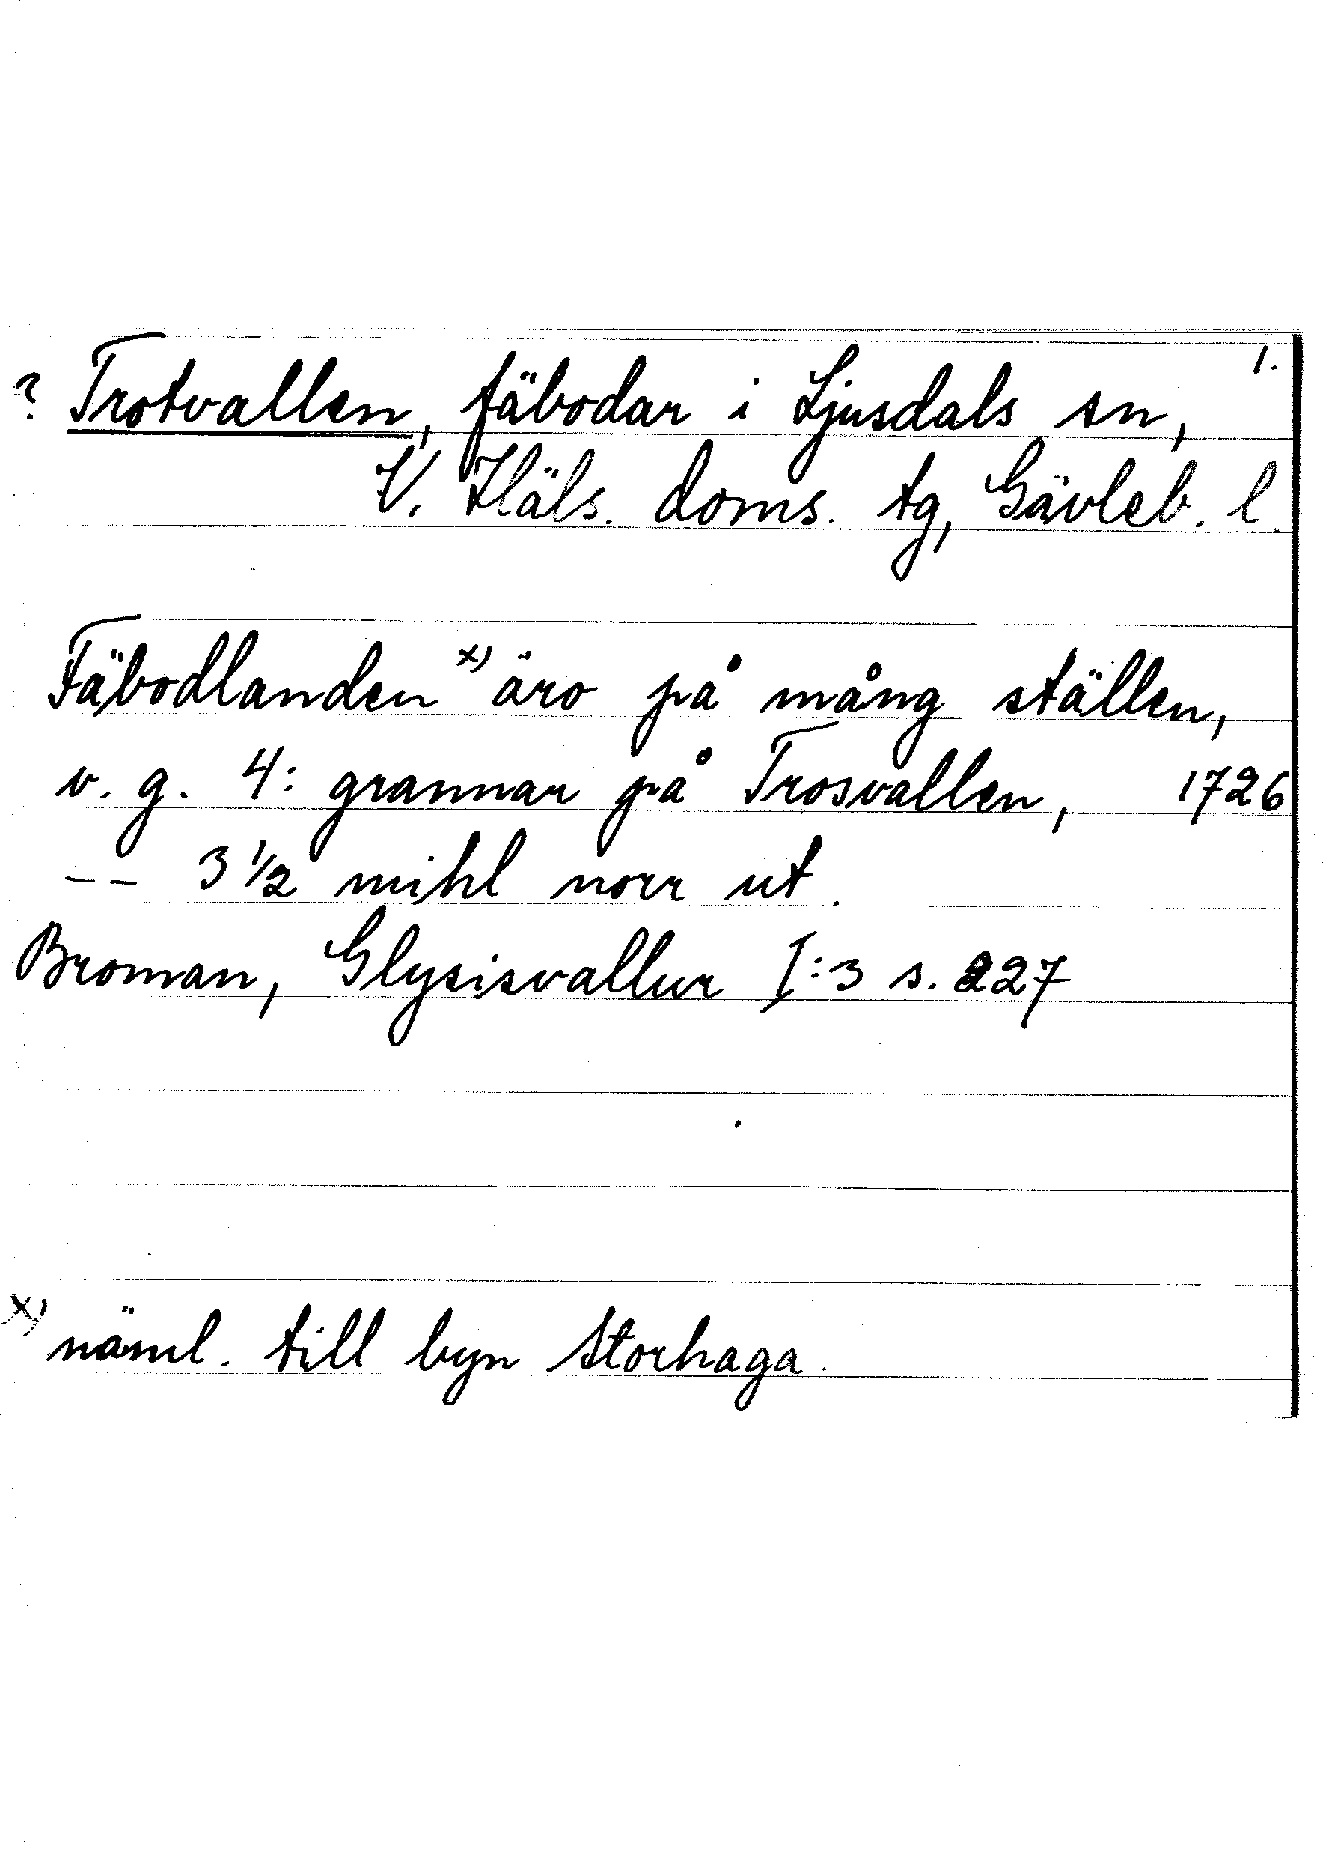 1.
? Trotvallen, fäbodar i Ljusdals sn,
V. Häls. doms. tg, Gävleb. l.
Fäbodlanden x) äro på mång ställen,
v. g. 4: grannar på Trosvallen, 1726
-- 3 1/2 mihl norr ut.
Broman, Glysisvallur I:3 s. 227
x) näml. till byn Storhaga.